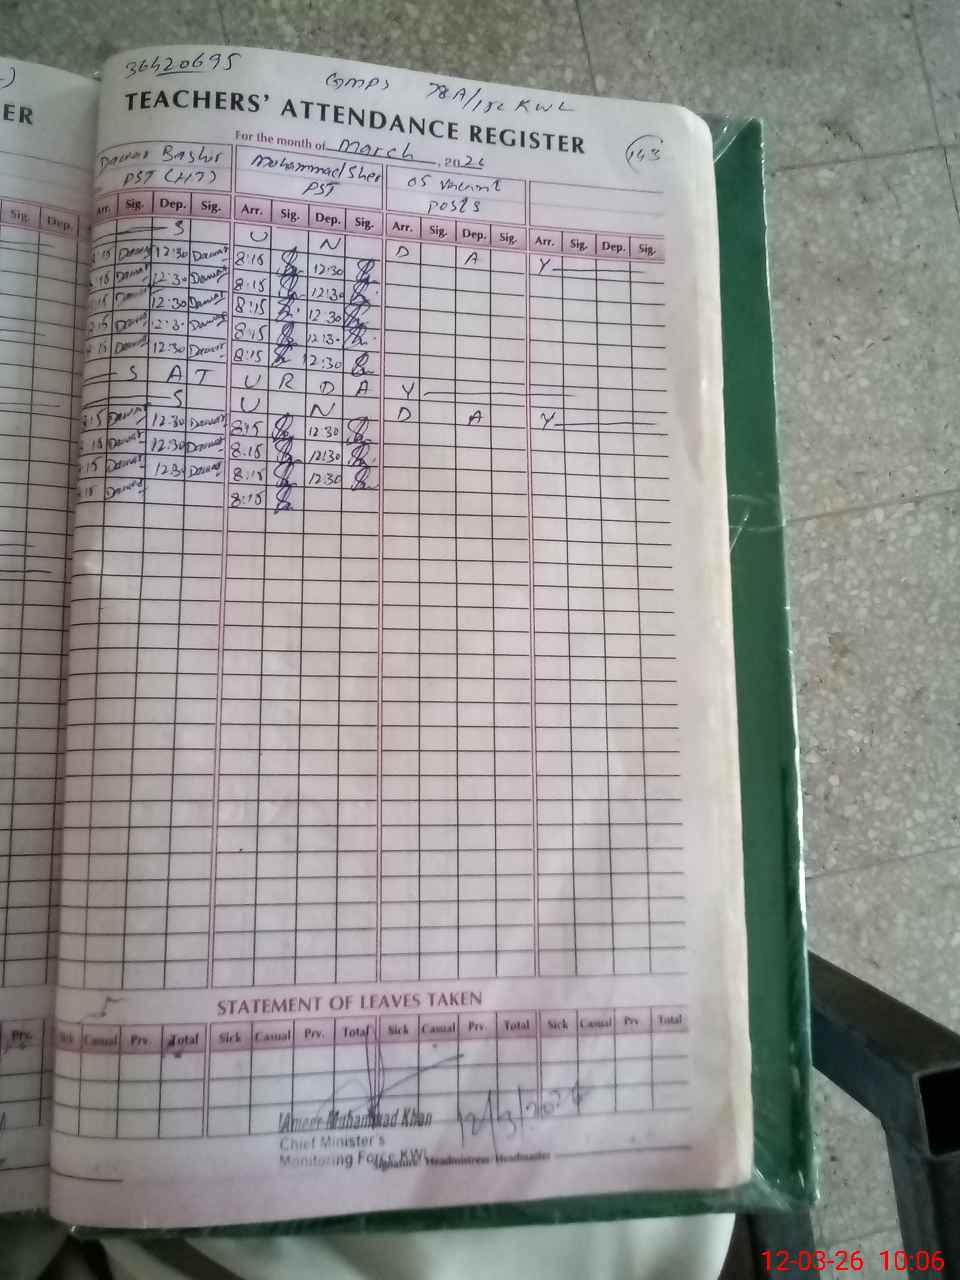 36420695
GMPS 78A/15L KWL
ER
TEACHERS' ATTENDANCE REGISTER
For the month of March, 2026
143
Dawar Bashir Muhammad Sher 05 Vacant
PST (HT) PST posts
Sig. Dep. Arr. Sig. Dep. Sig. Arr. Sig. Dep. Sig. Arr. Sig. Dep. Sig. Arr. Sig. Dep. Sig.
S U N D A Y
8:15 Dawar 12:30 Dawar 8:15 12:30
8:15 Dawar 12:30 Dawar 8:15 12:30
8:15 Dawar 12:30 Dawar 8:15 12:30
8:15 Dawar 12:30 Dawar 8:15 12:30
8:15 Dawar 12:30 Dawar 8:15 12:30
S A T U R D A Y
S U N D A Y
8:15 Dawar 12:30 Dawar 8:15 12:30
8:15 Dawar 12:30 Dawar 8:15 12:30
8:15 Dawar 12:30 Dawar 8:15 12:30
8:15 Dawar 8:15
STATEMENT OF LEAVES TAKEN
Prv. Sick Casual Prv. Total Sick Casual Prv. Total Sick Casual Prv. Total Sick Casual Prv. Total
Ameer Muhammad Khan
12/3/2026
Chief Minister's
Monitoring Force KWL
Signature Headmistress/Headmaster
12-03-26 10:06